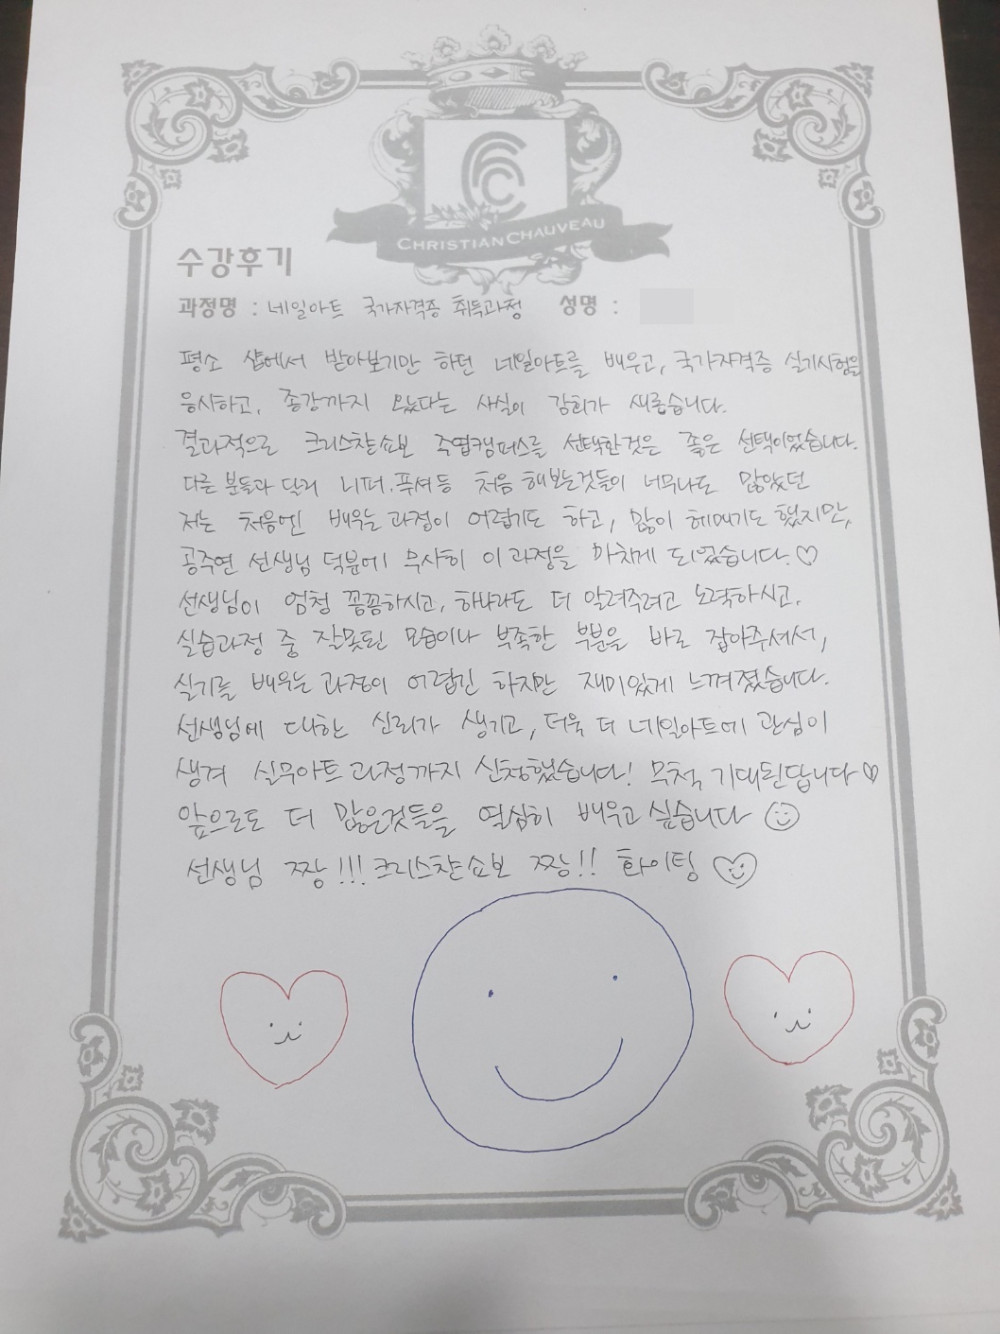 CHRISTIAN CHAUVEAU
수강후기
과정명 : 네일아트 국가자격증 취득과정 성명 :
평소 샵에서 받아보기만 하던 네일아트를 배우고, 국가자격증 실기시험을
응시하고, 종강까지 왔다는 사실이 감회가 새롭습니다.
결과적으로 크리스챤쇼보 주엽캠퍼스를 선택한것은 좋은 선택이었습니다.
다른 분들과 달리 니퍼.푸셔등 처음 해보는것들이 너무나도 많았던
저는 처음엔 배우는 과정이 어렵기도 하고, 많이 헤매기도 했지만,
공주연 선생님 덕분에 무사히 이 과정을 마치게 되었습니다.♡
선생님이 엄청 꼼꼼하시고, 하나라도 더 알려주려고 노력하시고,
실습과정 중 잘못된 모습이나 부족한 부분을 바로 잡아주셔서,
실기를 배우는 과정이 어렵긴 하지만 재미있게 느껴졌습니다.
선생님에 대한 신뢰가 생기고, 더욱 더 네일아트에 관심이
생겨 실무아트 과정까지 신청했습니다! 무척 기대된답니다♡
앞으로도 더 많은것들을 열심히 배우고 싶습니다
선생님 짱!!! 크리스챤쇼보 짱!! 화이팅